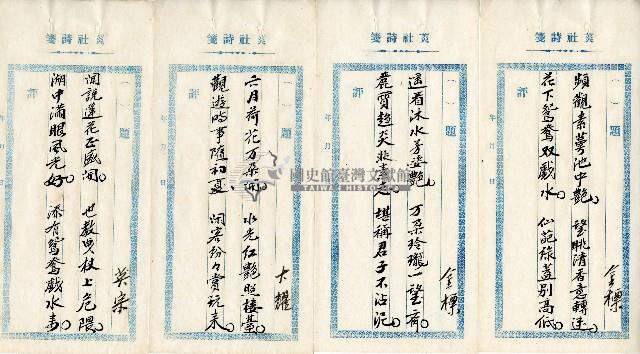 箋詩社芸
題
頻觀素萼池中艷 望眺清香意轉迷
花下鴛鴦双戲水 仙葩綠蓋別高低
金標
評
年 月 日
箋詩社芸
題
遥看沐水芳姿艷 万朶玲瓏一望齊
君子不沾泥
金標
評
年 月 日
箋詩社芸
題
六月荷花万朶開 水光紅艷照楼基
觀遊時事隨初夏 閑客紛々賞玩来
大耀
評
年 月 日
箋詩社芸
題
聞說蓮花正盛開 也教曳杖上危隈
湖中滿眼風光好 添有鴛鴦戲水
英宗
評
年 月 日
國史館臺灣文獻館
TAIWAN HISTORICA